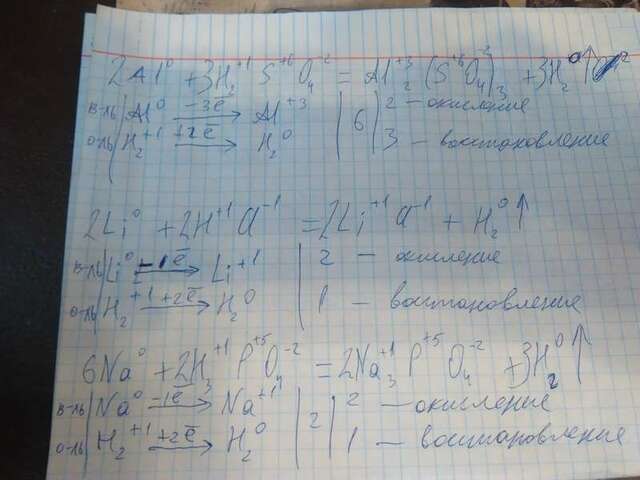 2Al⁰ + 3H₂⁺¹S⁺⁶O₄⁻² = Al₂⁺³(S⁺⁶O₄⁻²)₃ + 3H₂⁰↑
в-ль | Al⁰ -3ē → Al⁺³ | 6 | 2 - окисление
о-ль | H₂⁺¹ +2ē → H₂⁰ | 3 - восстановление
2Li⁰ + 2H⁺¹Cl⁻¹ = 2Li⁺¹Cl⁻¹ + H₂⁰↑
в-ль | Li⁰ -1ē → Li⁺¹ | 2 - окисление
о-ль | H₂⁺¹ +2ē → H₂⁰ | 1 - восстановление
6Na⁰ + 2H₃⁺¹P⁺⁵O₄⁻² = 2Na₃⁺¹P⁺⁵O₄⁻² + 3H₂⁰↑
в-ль | Na⁰ -1ē → Na⁺¹ | 2 | 2 - окисление
о-ль | H₂⁺¹ +2ē → H₂⁰ | 1 - восстановление